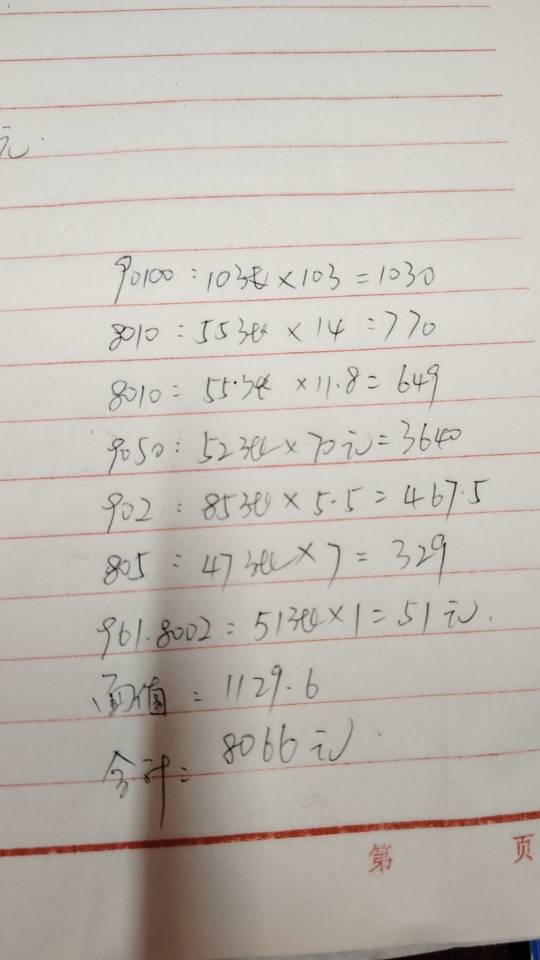 元.
90100:103张×103=1030
8010:55张×14=770
8010=55.张×11.8=649
9050:52张×70元=3640
902:85张×5.5=467.5
805:47张×7=329
961.8002=51张×1=51元.
面值:1129.6
合计:8066元.
第 页